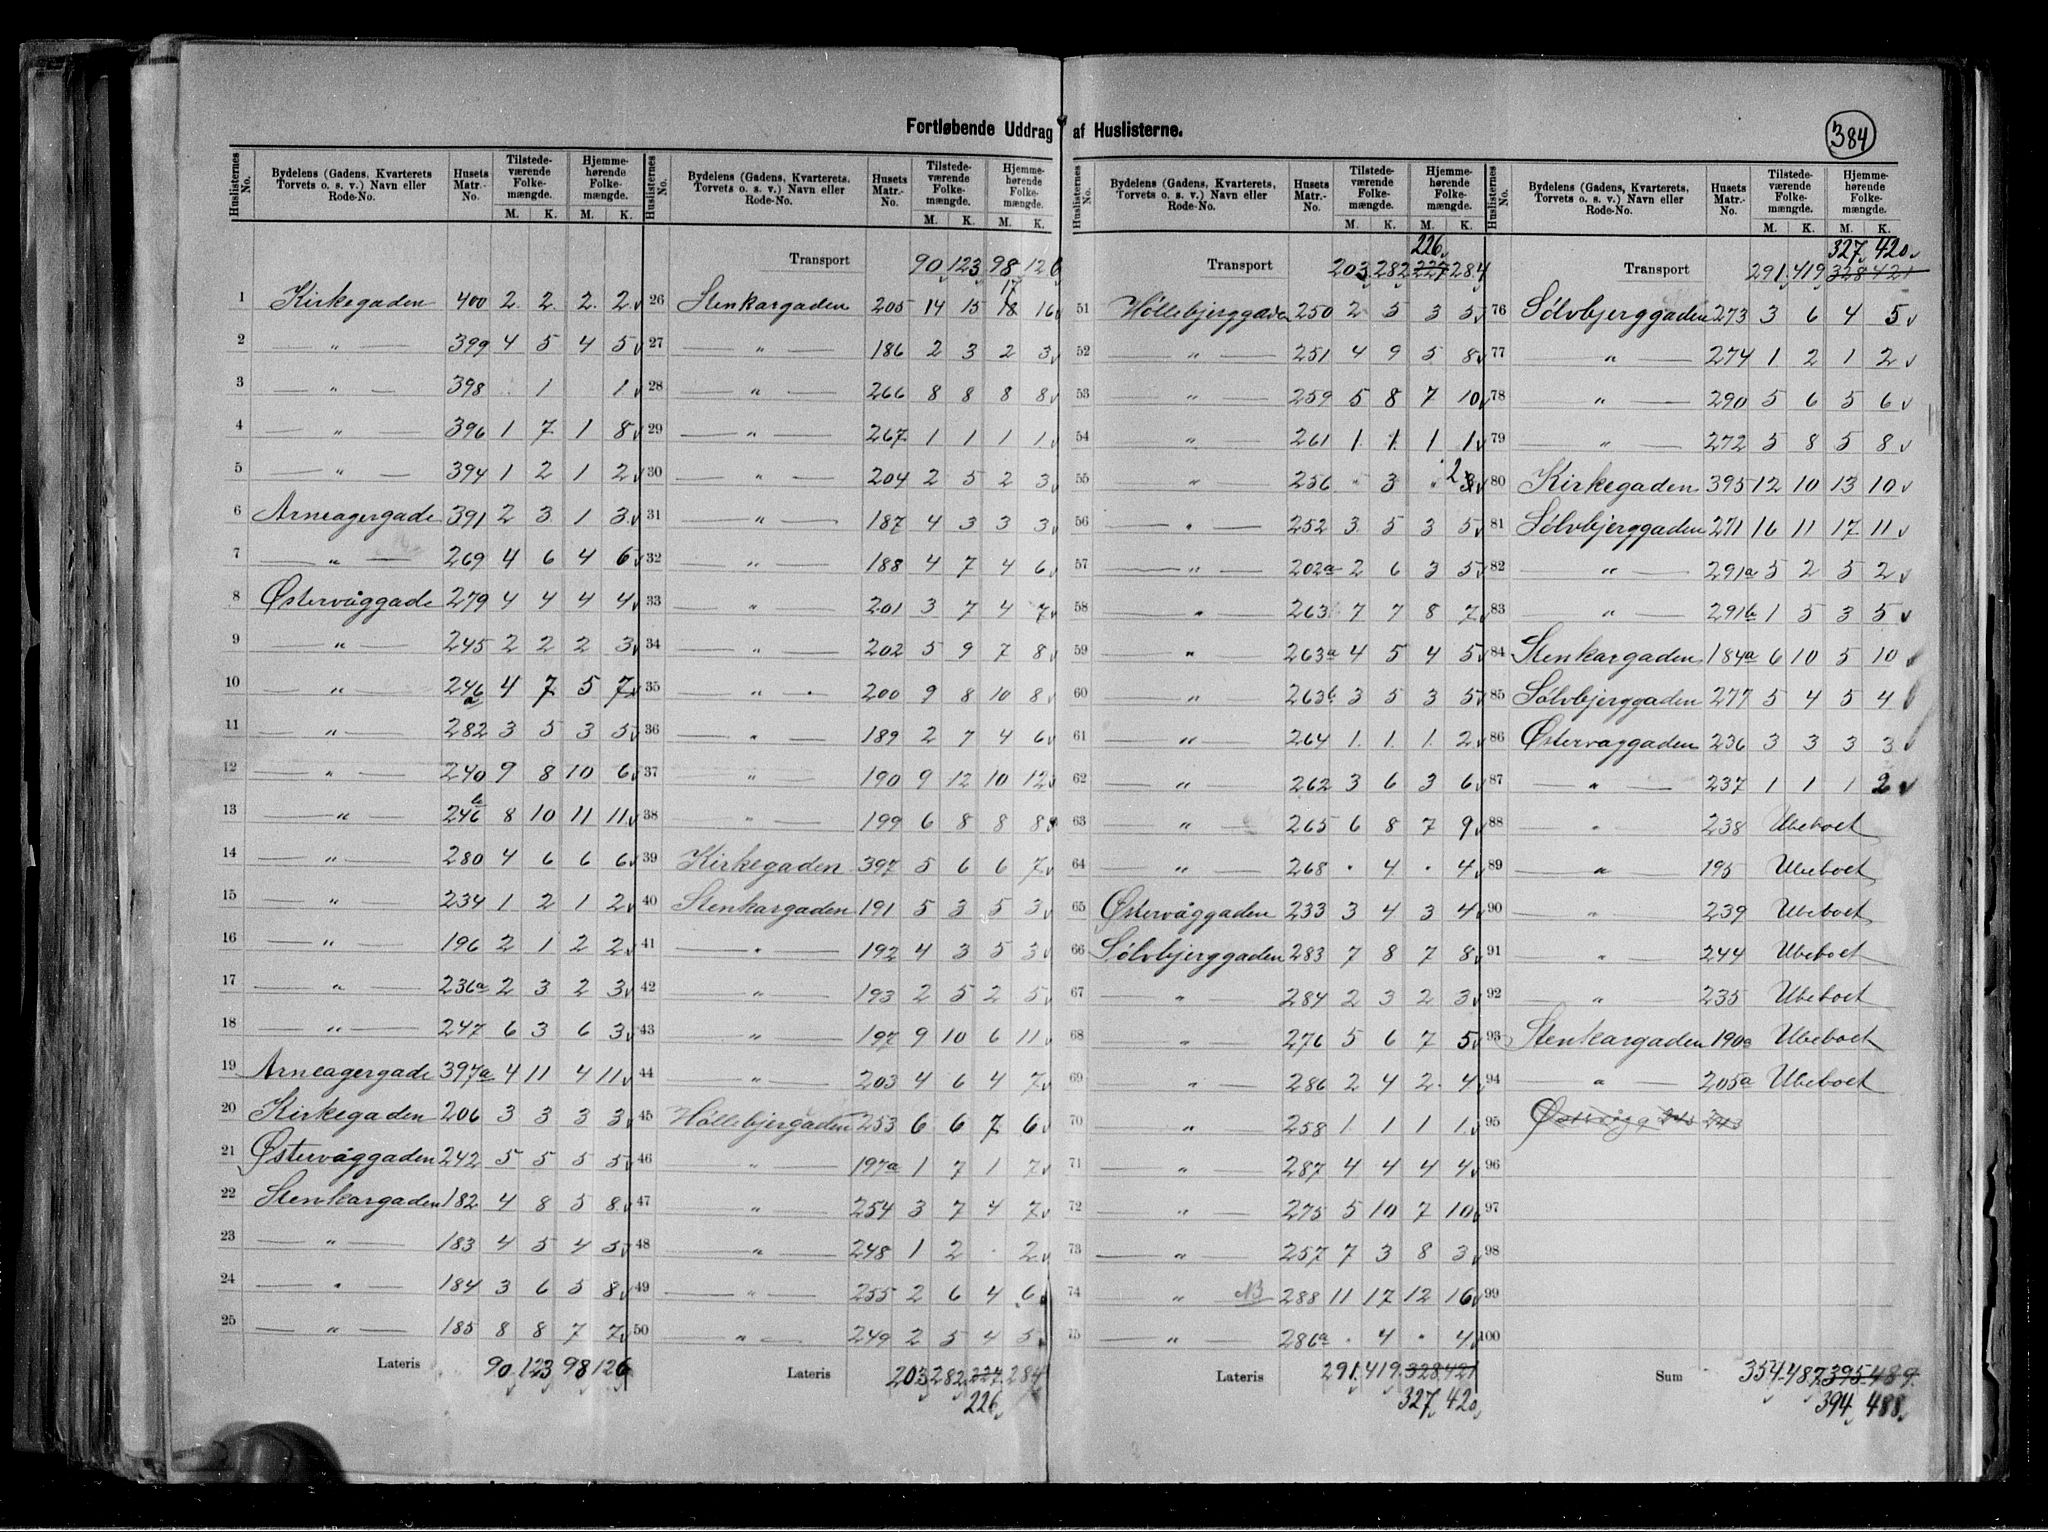 384
Fortløbende Uddrag af Huslisterne.
Huslisternes No. Bydelens (Gadens, Kvarterets, Torvets o. s. v.) Navn eller Rode-No. Husets Matr.-No. Tilstedeværende Folkemængde. M. K. Hjemmehørende Folkemængde. M. K.
1 Kirkegaden 400 2 2 2 2
2 — " — 399 4 5 4 5
3 — " — 398 . 1 1
4 — " — 396 1 7 1 8
5 — " — 394 1 2 1 2
6 Arneagergade 391 2 3 1 3
7 — " — 269 4 6 4 6
8 Østervåggade 279 4 4 4 4
9 — " — 245 2 2 2 3
10 — " — 246a 4 7 5 7
11 — " — 282 3 5 3 5
12 — " — 240 9 8 10 6
13 — " — 246b 8 10 11 11
14 — " — 280 4 6 6 6
15 — " — 234 1 2 1 2
16 — " — 196 2 1 2 2
17 — " — 236a 2 3 2 3
18 — " — 247 6 3 6 3
19 Arneagergade 397a 4 11 4 11
20 Kirkegaden 206 3 3 3 3
21 Østervåggaden 242 5 5 5 5
22 Stenkargaden 182 4 8 5 8
23 — " — 183 4 5 4 5
24 — " — 184 3 6 5 8
25 — " — 185 8 8 7 7
Lateris 90 123 98 126
Huslisternes No. Bydelens (Gadens, Kvarterets, Torvets o. s. v.) Navn eller Rode-No. Husets Matr.-No. Tilstedeværende Folkemængde. M. K. Hjemmehørende Folkemængde. M. K.
Transport 90 123 98 126
26 Stenkargaden 205 14 15 18 17 16
27 — " — 186 2 3 2 3
28 — " — 266 8 8 8 8
29 — " — 267 1 1 1 1
30 — " — 204 2 5 2 3
31 — " — 187 4 3 3 3
32 — " — 188 4 7 4 6
33 — " — 201 3 7 4 7
34 — " — 202 5 9 7 8
35 — " — 200 9 8 10 8
36 — " — 189 2 7 4 6
37 — " — 190 9 12 10 12
38 — " — 199 6 8 8 8
39 Kirkegaden 397 5 6 6 7
40 Stenkargaden 191 5 3 5 3
41 — " — 192 4 3 5 3
42 — " — 193 2 5 2 5
43 — " — 197 9 10 6 11
44 — " — 203 4 6 4 7
45 Høllebjergaden 253 6 6 7 6
46 — " — 197a 1 7 1 7
47 — " — 254 3 7 4 7
48 — " — 248 1 2 . 2
49 — " — 255 2 6 4 6
50 — " — 249 2 5 4 5
Lateris 203 282 227 284
226
Huslisternes No. Bydelens (Gadens, Kvarterets, Torvets o. s. v.) Navn eller Rode-No. Husets Matr.-No. Tilstedeværende Folkemængde. M. K. Hjemmehørende Folkemængde. M. K.
226
Transport 203 282 227 284
51 Høllebjerggaden 250 2 5 3 5
52 — " — 251 4 9 5 8
53 — " — 259 5 8 7 10
54 — " — 261 1 1 1 1
55 — " — 256 " 3 " 2 3
56 — " — 252 3 5 3 5
57 — " — 202a 2 6 3 5
58 — " — 263 7 7 8 7
59 — " — 263a 4 5 4 5
60 — " — 263b 3 5 3 5
61 — " — 264 1 1 1 2
62 — " — 262 3 6 3 6
63 — " — 265 6 8 7 9
64 — " — 268 . 4 . 4
65 Østervåggaden 233 3 4 3 4
66 Sølvbjerggaden 283 7 8 7 8
67 — " — 284 2 3 2 3
68 — " — 276 5 6 7 5
69 — " — 286 2 4 2 4
70 — " — 258 1 1 1 1
71 — " — 287 4 4 4 4
72 — " — 275 5 10 7 10
73 — " — 257 7 3 8 3
74 — " — NB 288 11 17 12 16
75 — " — 286a . 4 . 4
Lateris 291 419 328 421
327 420
Huslisternes No. Bydelens (Gadens, Kvarterets, Torvets o. s. v.) Navn eller Rode-No. Husets Matr.-No. Tilstedeværende Folkemængde. M. K. Hjemmehørende Folkemængde. M. K.
327 420
Transport 291 419 328 421
76 Sølvbjerggaden 273 3 6 4 5
77 — " — 274 1 2 1 2
78 — " — 290 5 6 5 6
79 — " — 272 5 8 5 8
80 Kirkegaden 395 12 10 13 10
81 Sølvbjerggaden 271 16 11 17 11
82 — " — 291a 5 2 5 2
83 — " — 291b 1 5 3 5
84 Stenkargaden 184a 6 10 5 10
85 Sølvbjerggaden 277 5 4 5 4
86 Østervaggaden 236 3 3 3 3
87 — " — 237 1 1 1 2
88 — " — 238 Ubeboet
89 — " — 195 Ubeboet
90 — " — 239 Ubeboet
91 — " — 244 Ubeboet
92 — " — 235 Ubeboet
93 Stenkargaden 190a Ubeboet
94 — " — 205a Ubeboet
95 243
96
97
98
99
100
Sum 354 487 395 489
394 488